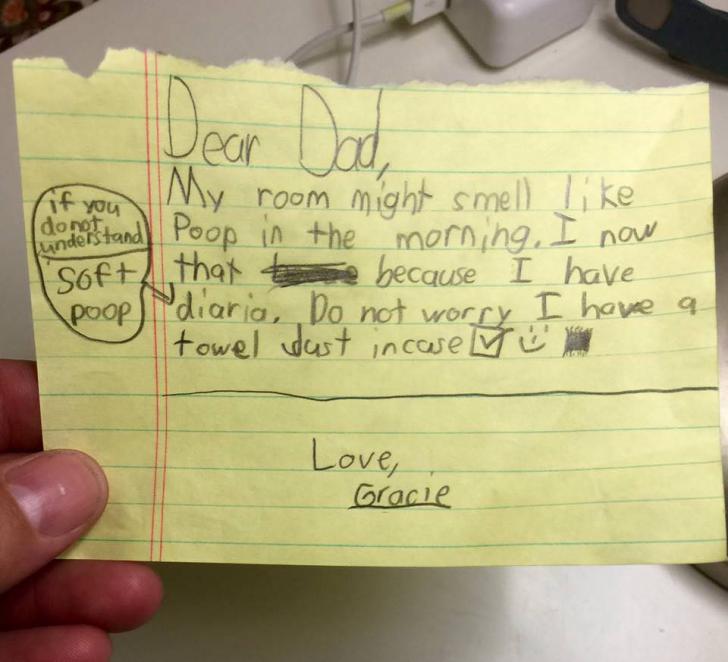 Dear Dad,
My room might smell like
Poop in the morning. I now
that because I have
diaria. Do not worry I have a
towel Just incase
if you
do not
understand
Soft
poop
Love,
Gracie